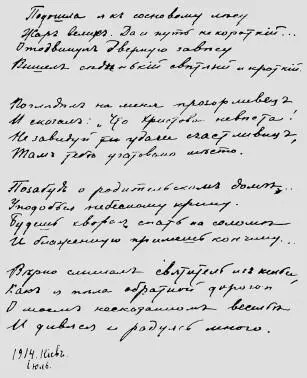 Подошла я къ сосновому лѣсу
Жаръ великъ. Да и путь не короткій...
Отодвинулъ дверную завѣсу
Вышелъ сѣденькій свѣтлый и кроткій.
Поглядѣлъ на меня прозорливецъ
И сказалъ: „Что Христова невѣста!
Не завидуй ты удачѣ счастливицъ,
Тамъ тебѣ уготовано мѣсто.
Позабудь о родительскомъ домѣ,
Уподобься небесному крину.
Будешь хворая спать на соломѣ
И блаженную примешь кончину...
Вѣрно слышалъ святитель изъ кельи,
Какъ я пѣла обратной дорогой
О моемъ несказанномъ весельѣ
И дивяся и радуясь много.
1914. Кіевъ.
Іюль.